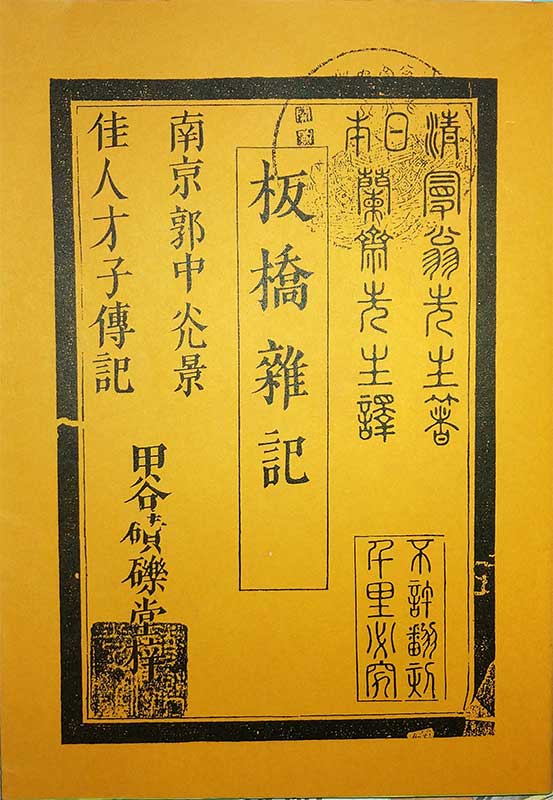 清曼翁先生著
日本蘭齋先生譯
不許翻刻
千里必究
板橋雜記
南京郭中光景
佳人才子傳記
甲谷磧礫堂梓